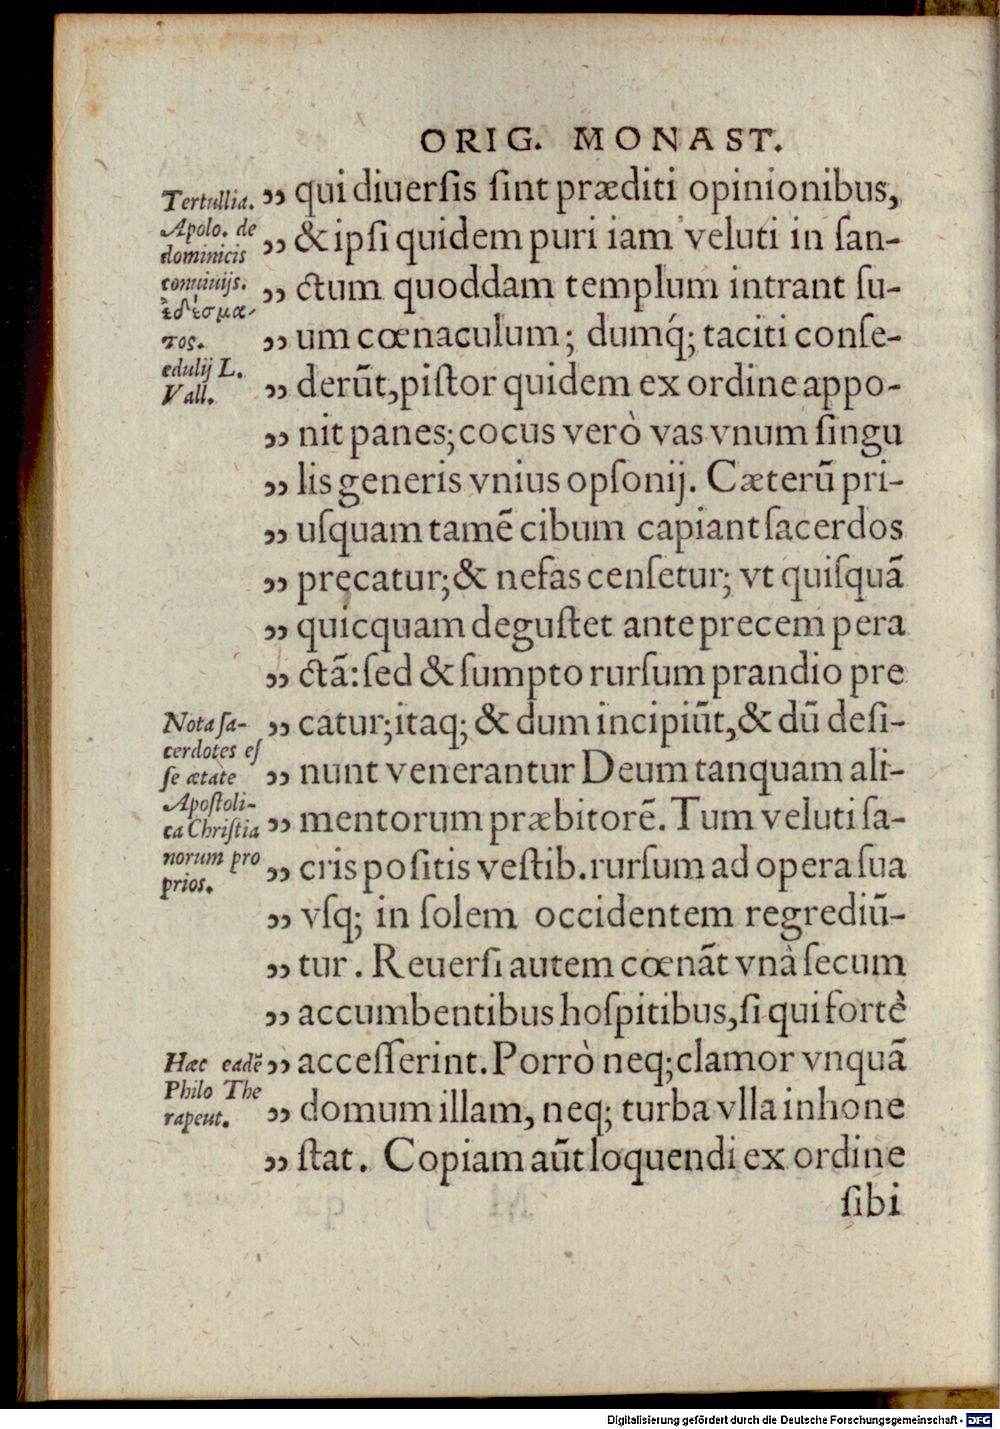 ORIG. MONAST.
Tertullia.
Apolo. de
dominicis
conuiuijs.
ἐδέσμα-
τος.
edulij L.
Vall.
„ qui diuersis sint præditi opinionibus,
„ & ipsi quidem puri iam veluti in ſan-
„ ctum quoddam templum intrant ſu-
„ um cœnaculum; dumq́; taciti conſe-
„ derūt, piſtor quidem ex ordine appo-
„ nit panes; cocus verò vas vnum ſingu
„ lis generis vnius opſonij. Cæterū pri-
„ uſquam tamē cibum capiant ſacerdos
„ pręcatur; & nefas cenſetur; vt quiſquā
„ quicquam deguſtet ante precem pera
„ ctā: ſed & ſumpto rurſum prandio pre
Nota ſa-
cerdotes eſ
ſe ætate
Apoſtoli-
ca Chriſtia
norum pro
prios.
„ catur; itaq; & dum incipiūt, & dū deſi-
„ nunt venerantur Deum tanquam ali-
„ mentorum præbitorē. Tum veluti ſa-
„ cris poſitis veſtib. rurſum ad opera ſua
„ vſq; in ſolem occidentem regrediū-
„ tur. Reuerſi autem cœnāt vnà ſecum
„ accumbentibus hoſpitibus, ſi qui fortè
Hæc eadē
Philo The
rapeut.
„ acceſſerint. Porrò neq; clamor vnquā
„ domum illam, neq; turba vlla inhone
„ ſtat. Copiam aūt loquendi ex ordine
ſibi
Digitalisierung gefördert durch die Deutsche Forschungsgemeinschaft - DFG